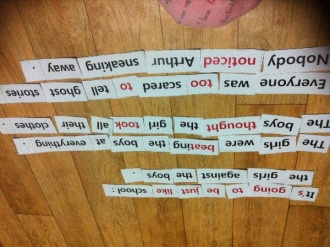 It's going to be just like school:
the girls against the boys.
The girls were beating the boys at everything.
The boys thought the girl took all their clothes.
Everyone was too scared to tell ghost stories
Nobody noticed Arthur sneaking away.